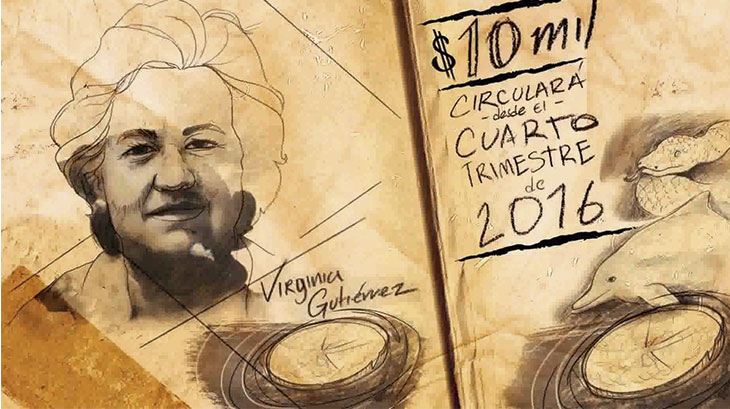 Virginia
Gutiérrez
$10 mil
CIRCULARÁ
- desde El -
CUARTO
TRIMESTRE
de
2016